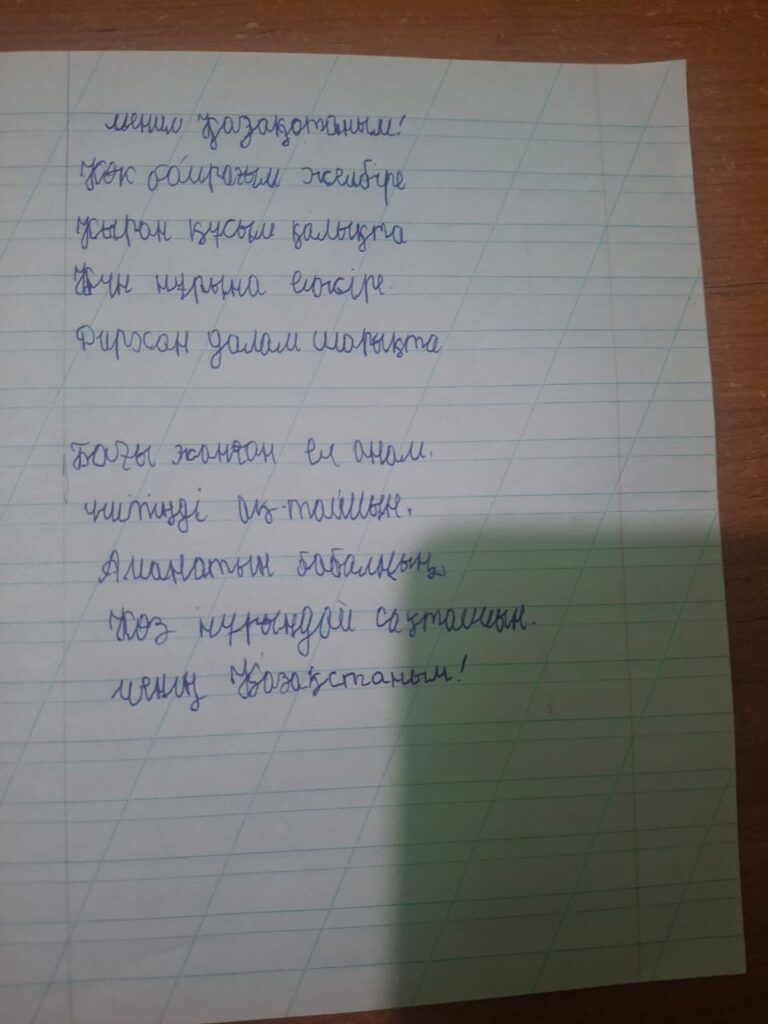 меним Қазақстаным!
Көк байрағым желбіре
Қыран құсым қалықта
Күн нұрына елжіре.
Дархан далам шарықта
Бағы жанған ел анам.
үмітіңді ақтаймын.
Аманатын бабалның
Көз нұрындай сақтаймын.
менің Қазақстаным!